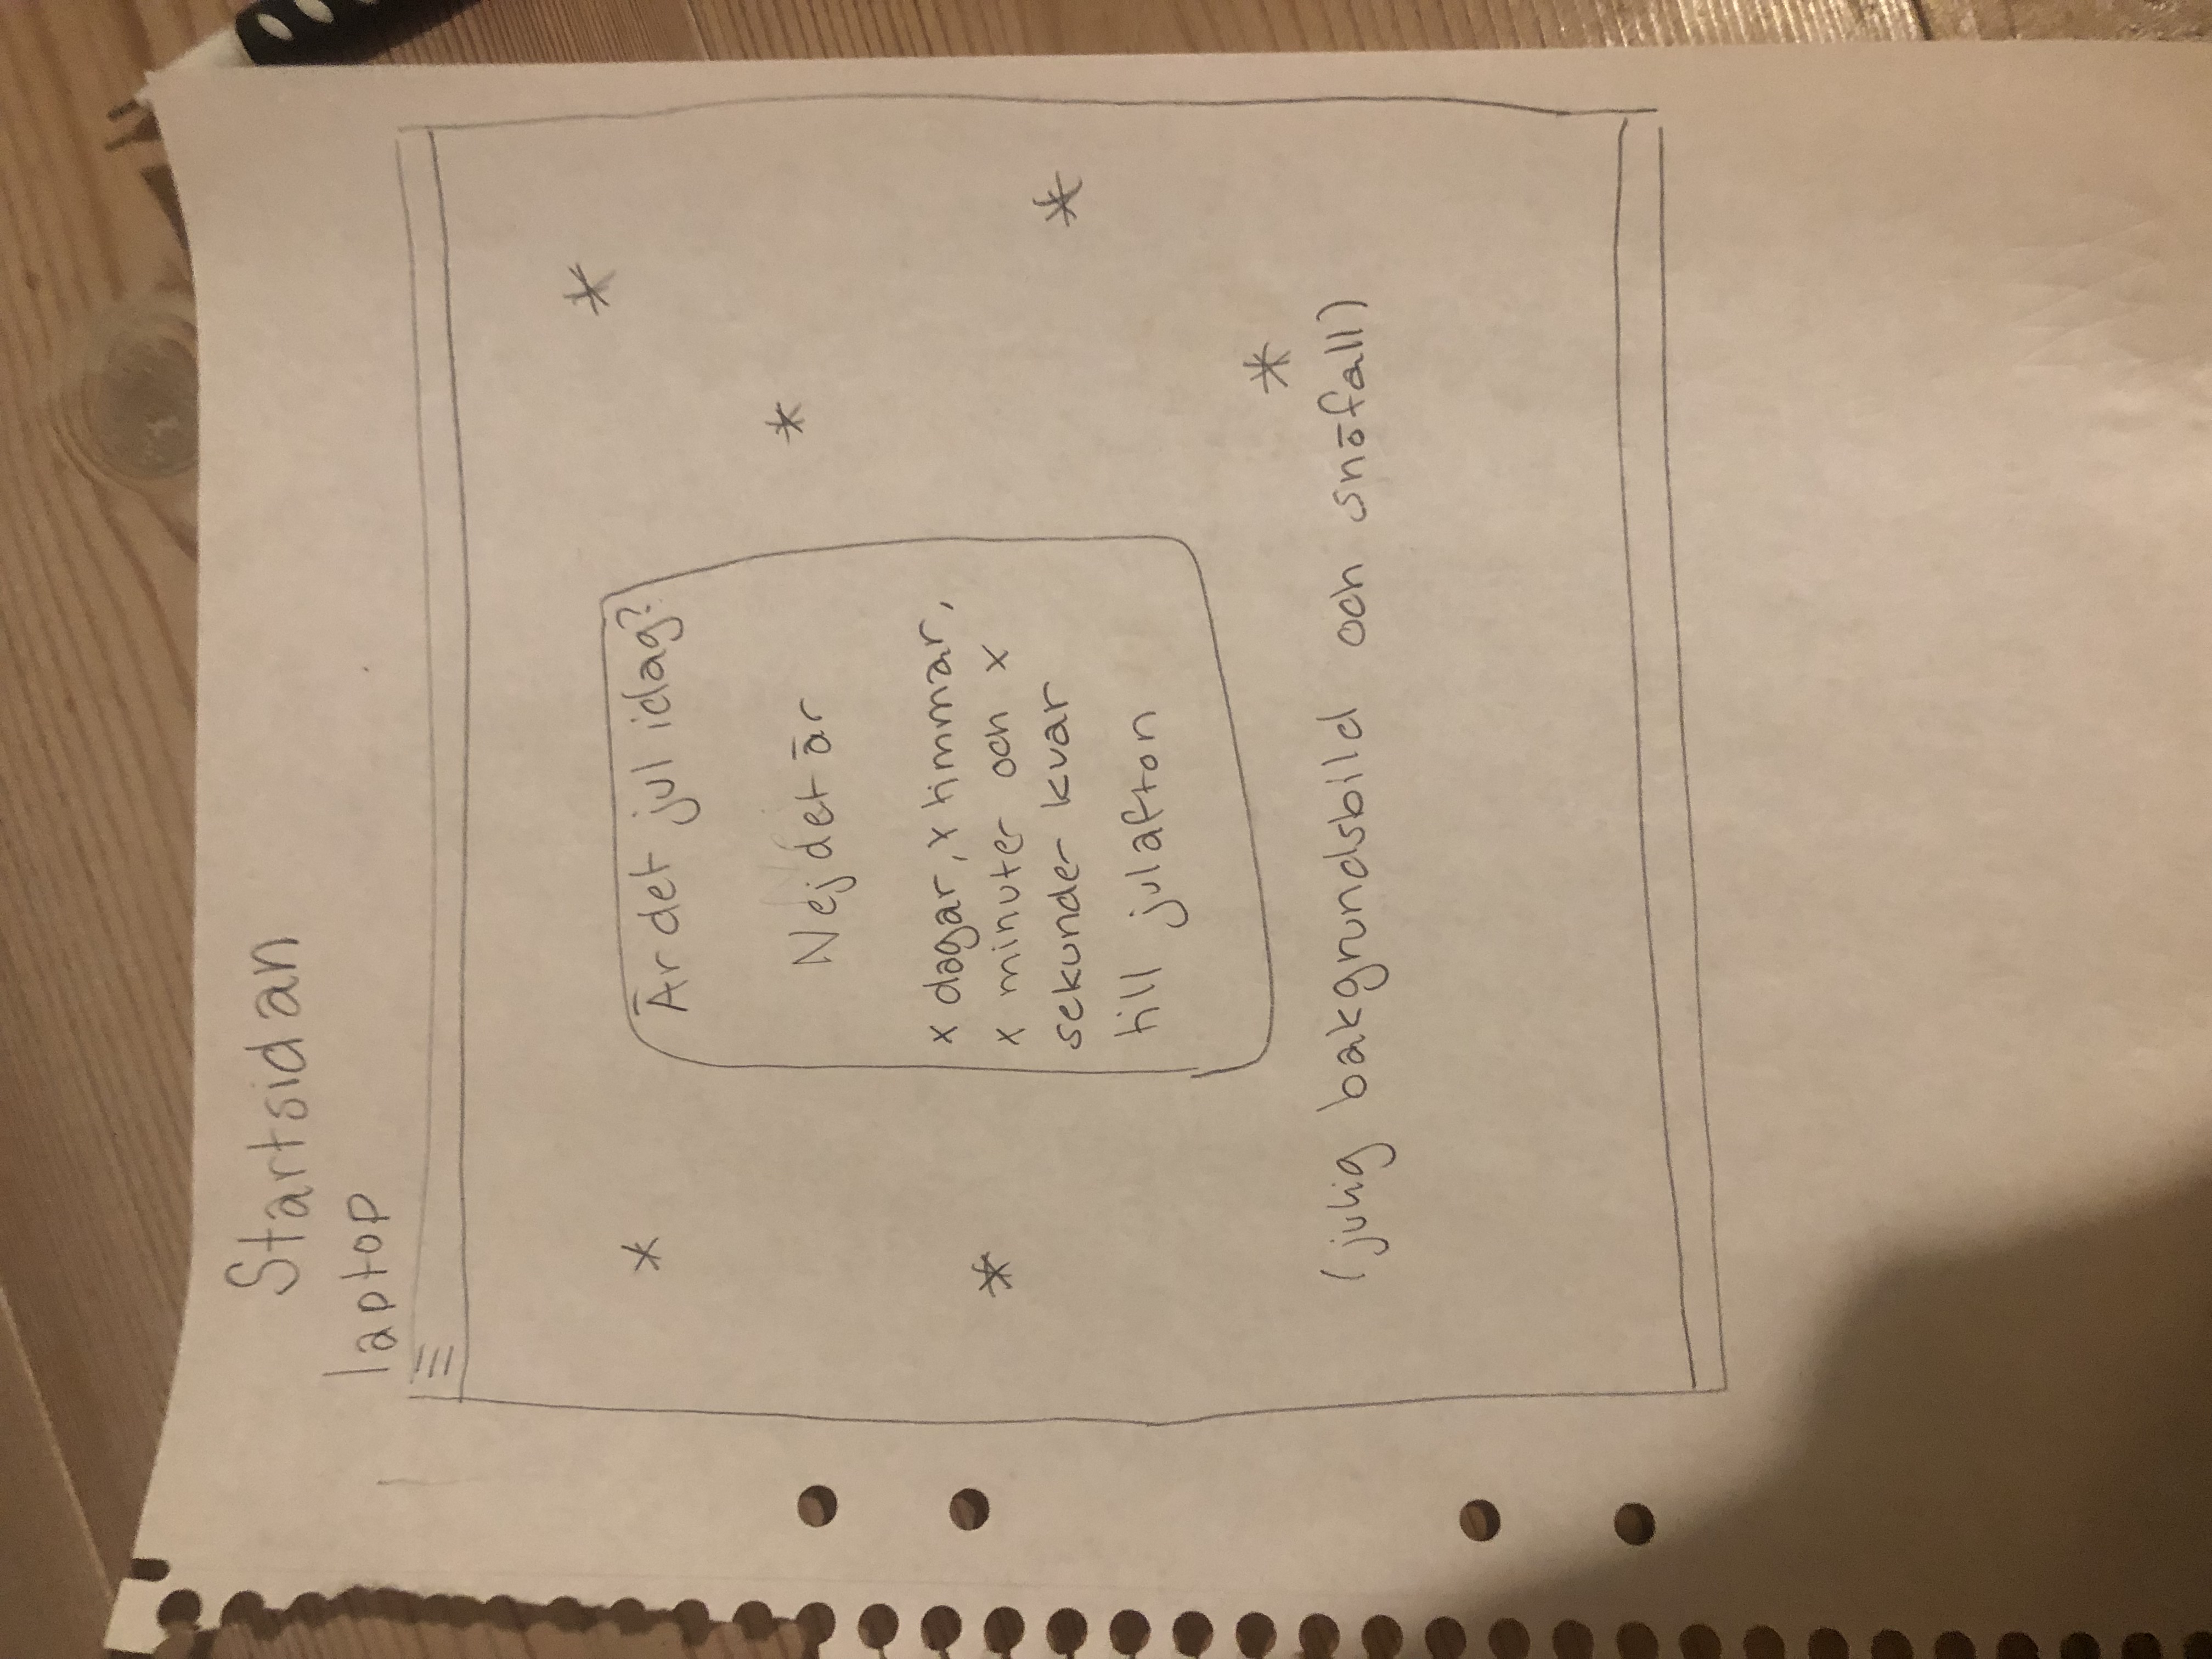 Startsidan
laptop
Är det jul idag?
Nej det är
x dagar, x timmar,
x minuter och x
sekunder kvar
till julafton
(julig bakgrundsbild och snöfall)